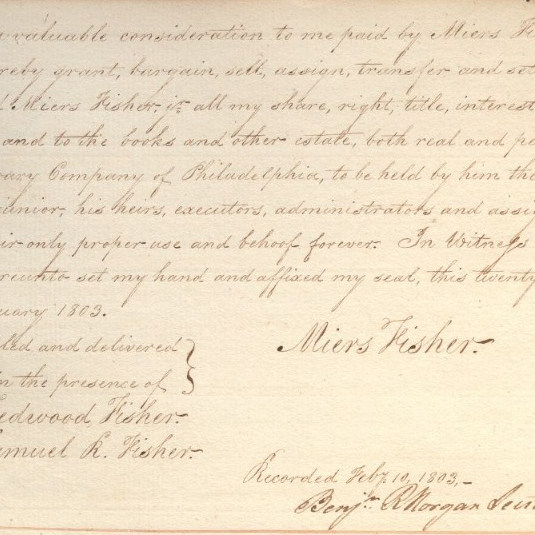 valuable consideration to me paid by Miers Fi
reby grant, bargain, sell, assign, transfer and set
Miers Fisher, jr. all my share, right, title, interest
and to the books and other estate, both real and pe
rary Company of Philadelphia, to be held by him the
Junior, his heirs, executors, administrators and assig
ir only proper use and behoof forever. In Witness
reunto set my hand and affixed my seal, this twenty
uary 1803.
led and delivered
Miers Fisher.
in the presence of
edwood Fisher.
amuel R. Fisher.
Recorded Feby. 10, 1803,
Benjn. R Morgan Secr